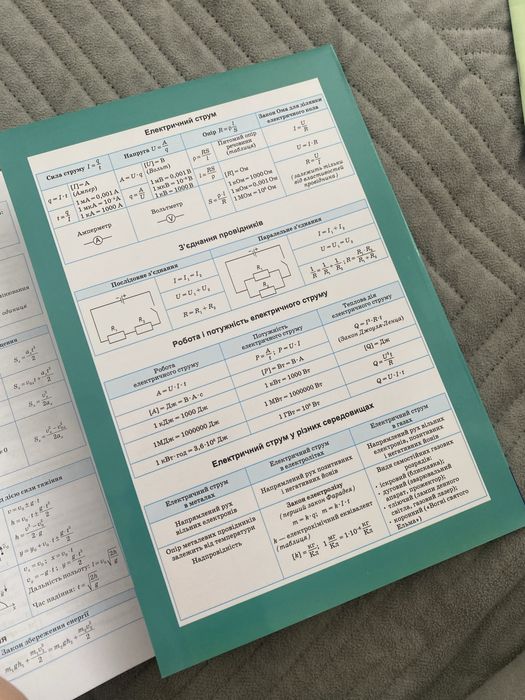 Електричний струм
Сила струму I = q/t
Напруга U = A/q
Опір R = ρ l/S
Закон Ома для ділянки
електричного кола
q = I · t
t = q/I
[I] = А
(Ампер)
1 мА = 0,001 А
1 мкА = 10⁻⁶ А
1 кА = 1000 А
A = U · q
q = A/U
[U] = В
(Вольт)
1 мВ = 0,001 В
1 мкВ = 10⁻⁶ В
1 кВ = 1000 В
ρ = RS/l
l = RS/ρ
S = ρ l/R
Питомий опір
речовини
(таблиця)
[R] = Ом
1 кОм = 1000 Ом
1 мОм = 0,001 Ом
1 МОм = 10⁶ Ом
I = U/R
U = I · R
R = U/I
(залежить тільки
від властивостей
провідника)
Амперметр
A
Вольтметр
V
З'єднання провідників
Послідовне з'єднання
Паралельне з'єднання
R₁ R₂
I = I₁ = I₂
U = U₁ + U₂
R = R₁ + R₂
R₁
R₂
I = I₁ + I₂
U = U₁ = U₂
1/R = 1/R₁ + 1/R₂; R = R₁ · R₂/(R₁ + R₂)
Робота і потужність електричного струму
Робота
електричного струму
Потужність
електричного струму
Теплова дія
електричного струму
A = U · I · t
P = A/t; P = U · I
Q = I² · R · t
(Закон Джоуля-Ленца)
[A] = Дж = В · А · с
[P] = Вт = В · А
[Q] = Дж
1 кДж = 1000 Дж
1 кВт = 1000 Вт
Q = U²t/R
1МДж = 1000000 Дж
1 МВт = 1000000 Вт
Q = U · I · t
1 кВт · год = 3,6 · 10⁶ Дж
1 ГВт = 10⁹ Вт
Електричний струм у різних середовищах
Електричний струм
в металах
Електричний струм
в електролітах
Електричний струм
в газах
Напрямлений рух
вільних електронів
Напрямлений рух позитивних
і негативних йонів
Напрямлений рух вільних
електронів, позитивних
і негативних йонів
Опір металевих провідників
залежить від температури
Надпровідність
Закон електролізу
(перший закон Фарадея)
m = k · q; m = k · I · t
k — електрохімічний еквівалент
(таблиця)
[k] = кг/Кл; 1 мг/Кл = 1 · 10⁻⁶ кг/Кл
Види самостійних газових
розрядів:
• іскровий (блискавка);
• дуговий (зварювальний
апарат, прожектор);
• тліючий (лампи денного
світла, газовий лазер);
• коронний («Вогні святого
Ельма»)
одиниця
Sₓ = vₓ²/2aₓ
сі дією сили тяжіння
Дальність польоту: l = v₀ √(2h/g)
Час падіння: t = √(2h/g)
Закон збереження енергії